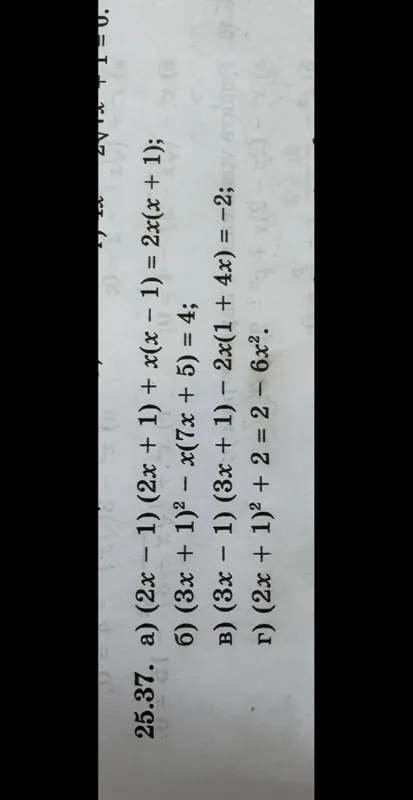 25.37. а) (2x − 1) (2x + 1) + x(x − 1) = 2x(x + 1);
б) (3x + 1)² − x(7x + 5) = 4;
в) (3x − 1) (3x + 1) − 2x(1 + 4x) = −2;
г) (2x + 1)² + 2 = 2 − 6x².